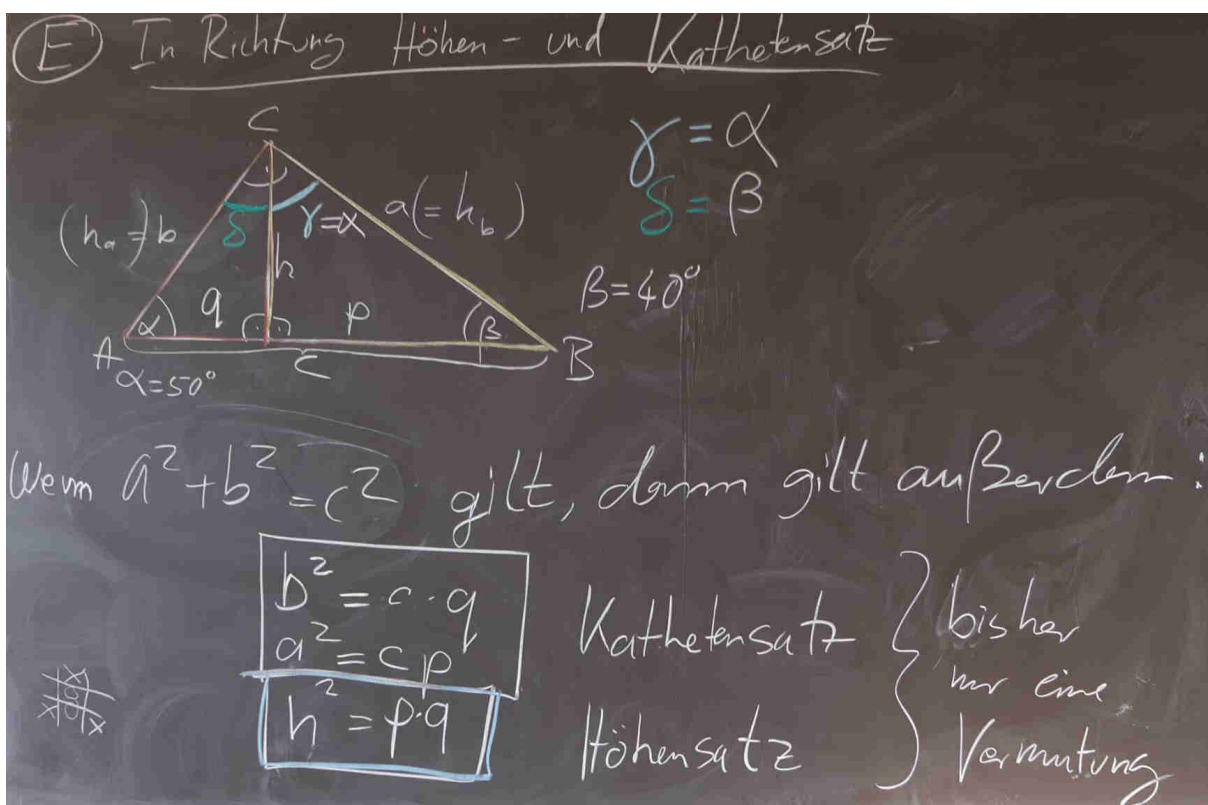 E In Richtung Höhen- und Kathetensatz
C
γ = α
δ = β
(hₐ =) b
δ
γ=α
a(= h_b)
h
β=40°
q
p
α
β
A
c
B
α=50°
Wenn a² + b² = c² gilt, dann gilt außerdem:
b² = c · q
a² = cp
Kathetensatz
h² = p·q
Höhensatz
bisher
nur eine
Vermutung